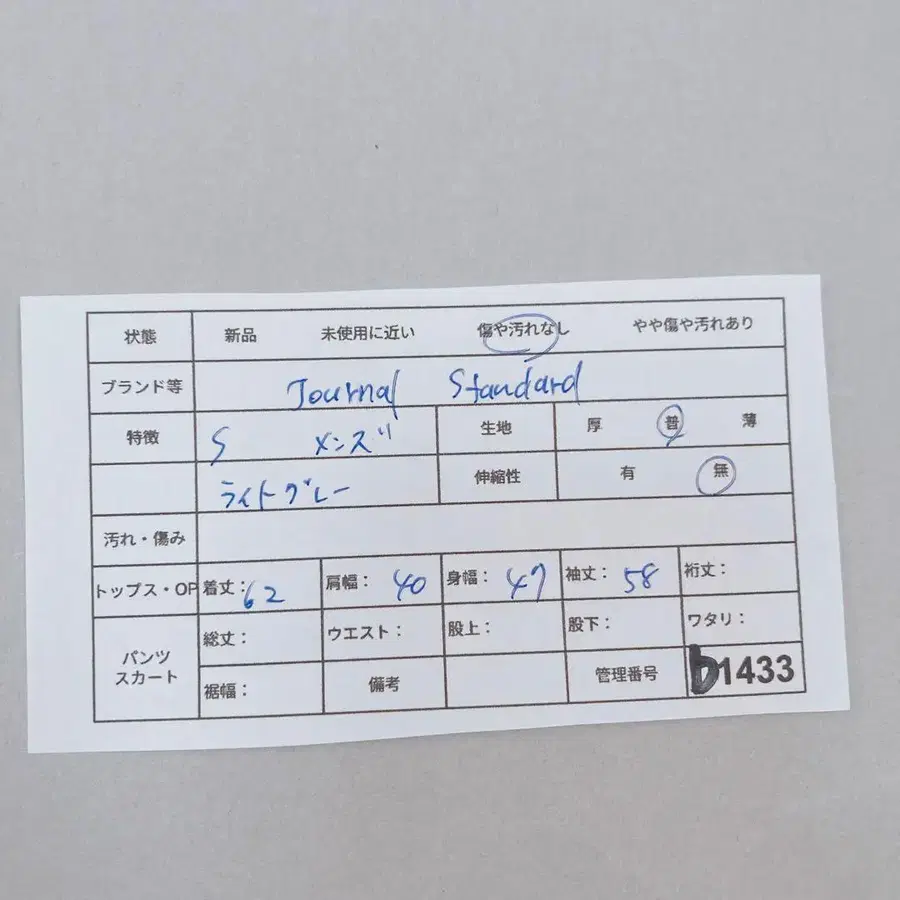 状態 新品 未使用に近い 傷や汚れなし やや傷や汚れあり
ブランド等 Journal Standard
特徴 S メンズ 生地 厚 普 薄
ライトグレー 伸縮性 有 無
汚れ・傷み
トップス・OP 着丈：62 肩幅：40 身幅：47 袖丈：58 裄丈：
パンツ スカート 総丈： ウエスト： 股上： 股下： ワタリ：
裾幅： 備考 管理番号 b1433